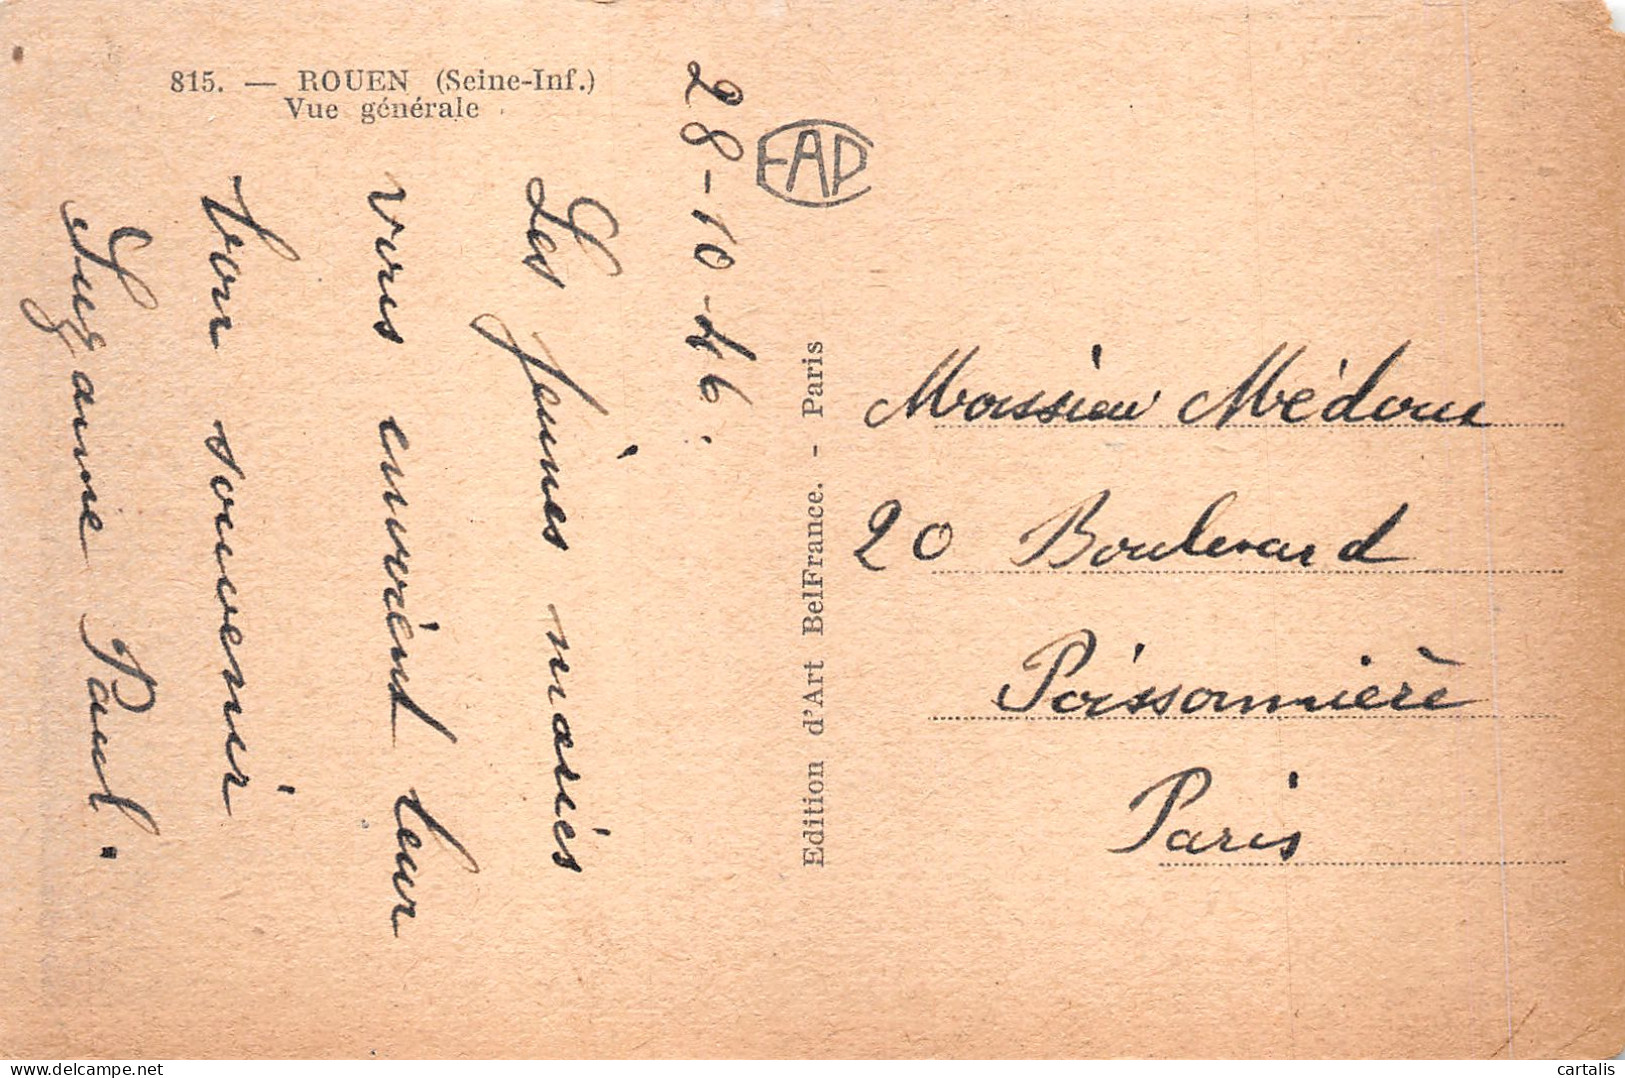 815. — ROUEN (Seine-Inf.)
Vue générale
28-10-46.
Les jeunes mariés
vous envoient leur
bon souvenir
Suzanne Paul.
EAP
Edition d'Art BelFrance. - Paris
Monsieur Médour
20 Boulevard
Poissonnière
Paris
delcampe.net
cartalis